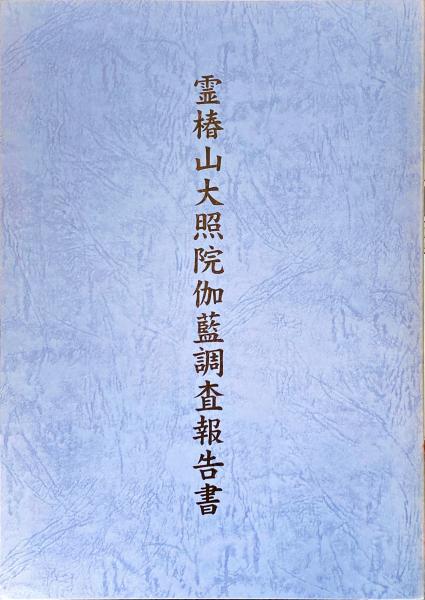 霊椿山大照院伽藍調査報告書